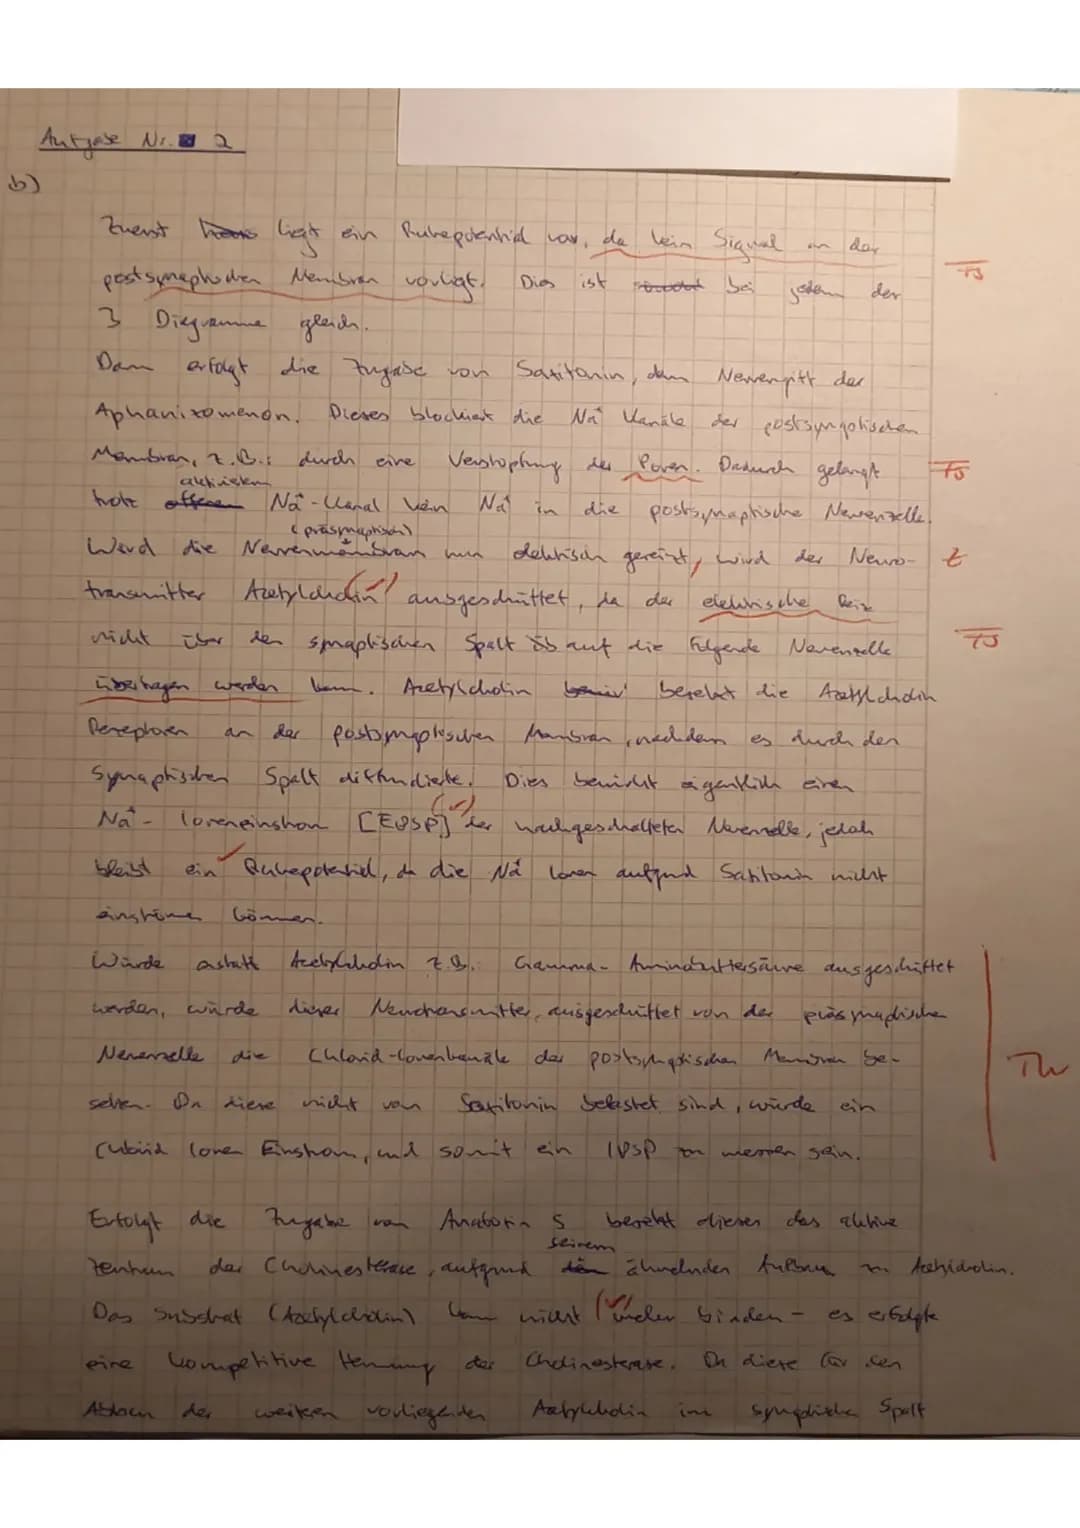 Aufgabe Nr. 2
b)
Zuerst liegt ein Ruhepotential vor, da kein Signal an der
postsynaptischen Membran vorliegt. Dies ist bei jedem der
3 Diagramme gleich.
Dann erfolgt die Zugabe von Saxitonin, dem Nervengift der
Aphanizomenon. Dieses blockiert die Na⁺ Kanäle der postsynaptischen
Membran, z.B.: durch eine Verstopfung der Poren. Dadurch gelangt
TS
TS
aktivierten
trotz offenen Na⁺-Kanal kein Na⁺ in die postsynaptische Nervenzelle.
(präsynaptisch)
Wird die Nervenmembran nun elektrisch gereizt, wird der Neuro-
Z
transmitter Acetylcholin (✓) ausgeschüttet, da der elektrische Reiz
nicht über den synaptischen Spalt auf die Folgende Nervenzelle
TS
übertragen werden kann. Acetylcholin besetzt die Acetylcholin
Rezeptoren an der postsynaptischen Membran, nachdem es durch den
Synaptischen Spalt diffundierte. Dies bewirkt eigentlich einen
Na⁺- Ioneneinstrom [EPSP] (✓) der nachgeschalteten Nervenzelle, jedoch
bleibt ein ✓ Ruhepotential, da die Na⁺ Ionen aufgrund Saxitonin nicht
einströmen können.
Würde anstatt Acetylcholin z.B. Gamma-Aminobuttersäure ausgeschüttet
werden, würde dieser Neurotransmitter, ausgeschüttet von der präsynaptischen
Nervenzelle die Chlorid-Ionenkanäle der postsynaptischen Membran be-
Th
setzen. Da diese nicht von Saxitonin belastet sind, würde ein
Chlorid Ionen Einstrom, und somit ein IPSP zu messen sein.
Erfolgt die Zugabe von Anatoxin S besetzt dieser das aktive
seinem
Zentrum der Cholinesterase, aufgrund ähnelnden Aufbau zu Acetylcholin.
Das Substrat (Acetylcholin) kann nicht (✓) mehr binden - es erfolgte
eine kompetitive Hemmung der Cholinesterase. Da diese für den
Abbau der weiteren vorliegenden Acetylcholin im synaptischen Spalt